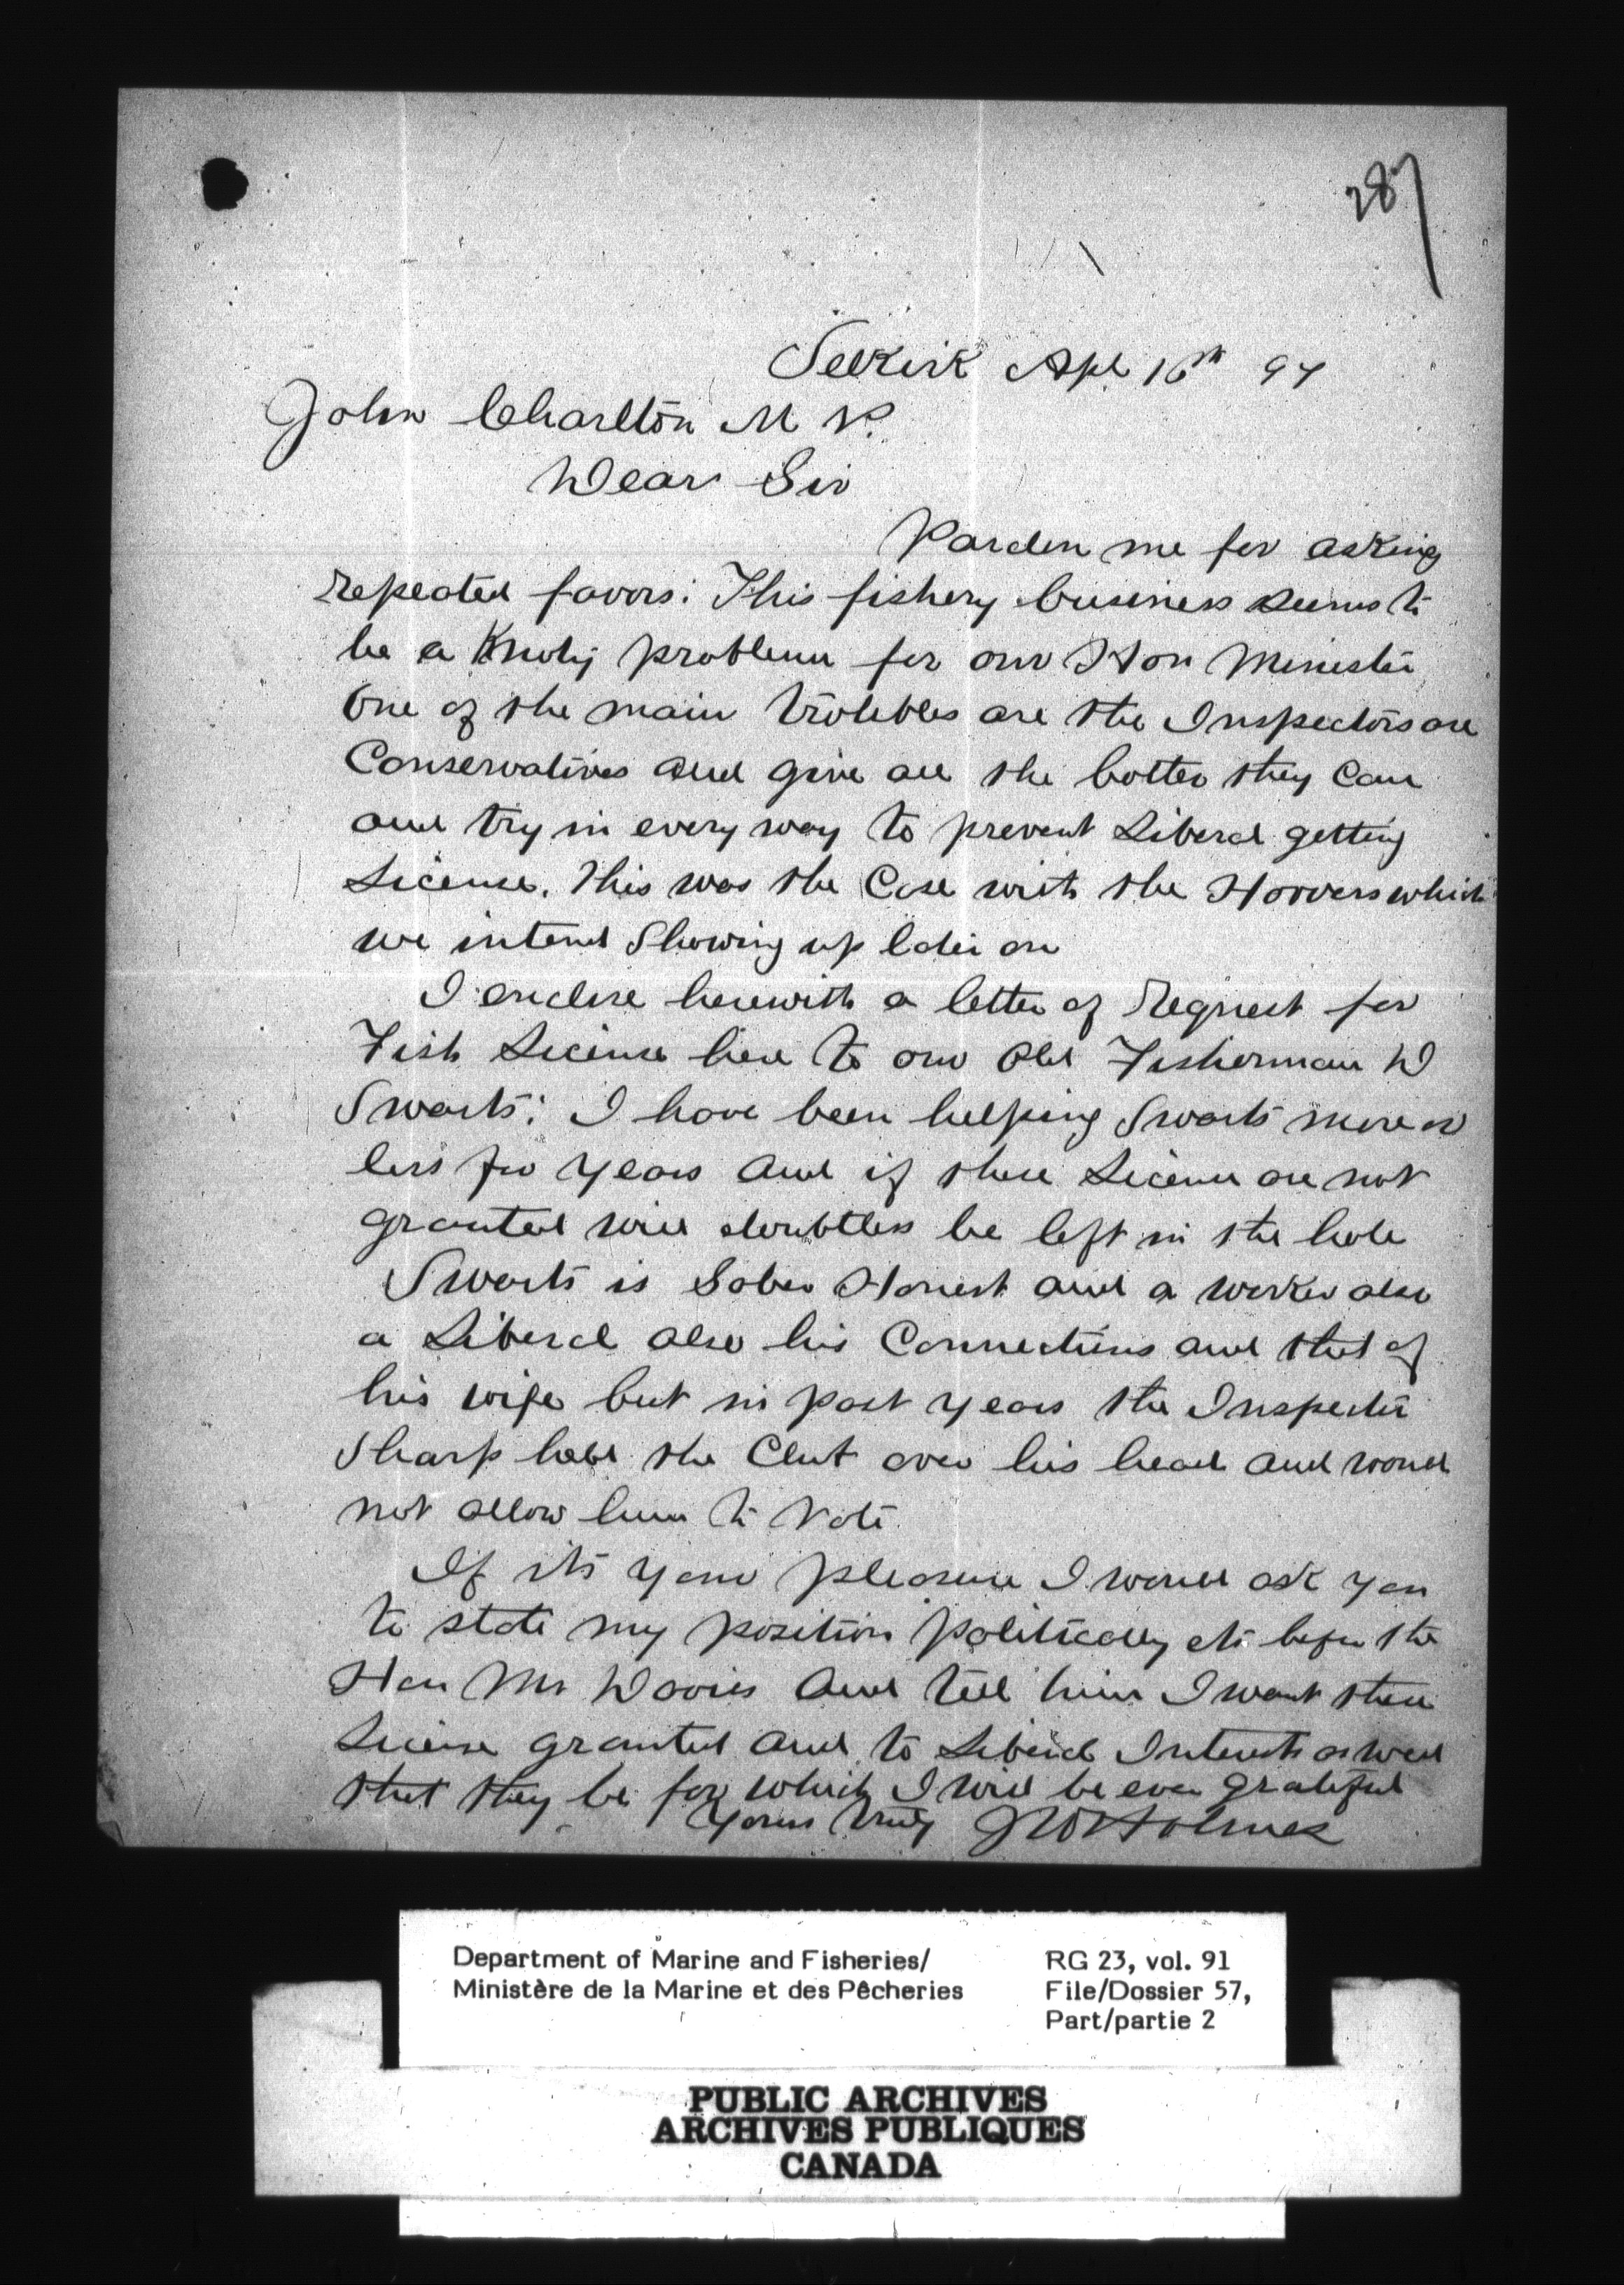 287
Selkirk Apl 16th 97
John Charlton M P.
Dear Sir
Pardon me for asking
repeated favors: This fishery business seems to
be a Knoty problem for our Hon Minister
One of the main troubles are the Inspectors are
Conservatives and give all the bother they can
and try in every way to prevent Liberal getting
License. This was the Case with the Hoovers which
we intend Showing up later on
I enclose herewith a letter of Request for
Fish License here to our old Fisherman D
Swarts: I have been helping Swarts more or
less for years and if these License are not
granted will doubtless be left in the hole
Swarts is Sober Honest and a worker also
a Liberal also his Connections and that of
his wife but in past years the Inspector
Sharp held the Club over his head and would
not allow him to Vote
If its your pleasure I would ask you
to state my position politically etc before the
Hon Mr Davies and tell him I want these
License granted and to Liberal Interests as well
that they be for which I will be ever grateful
Yours truly J W Holmes
Department of Marine and Fisheries/
Ministère de la Marine et des Pêcheries
RG 23, vol. 91
File/Dossier 57,
Part/partie 2
PUBLIC ARCHIVES
ARCHIVES PUBLIQUES
CANADA